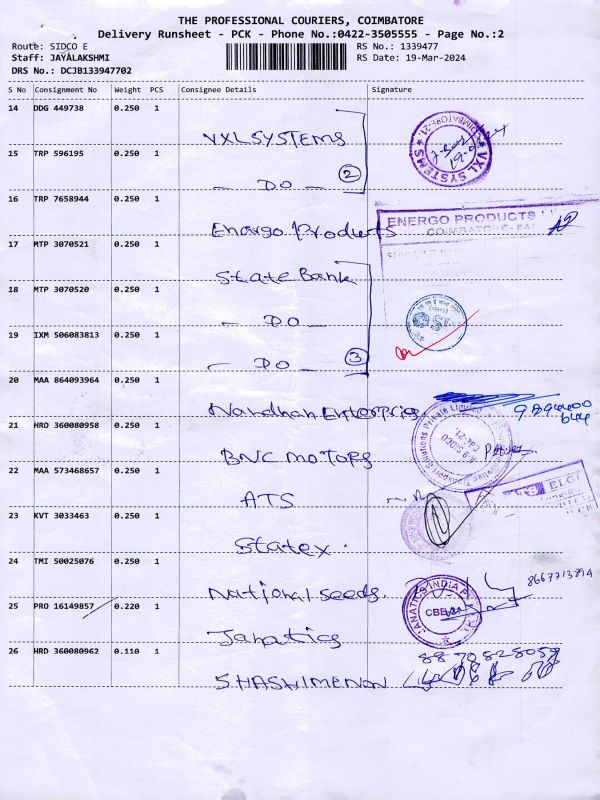 THE PROFESSIONAL COURIERS, COIMBATORE
Delivery Runsheet - PCK - Phone No.:0422-3505555 - Page No.:2
Route: SIDCO E
Staff: JAYALAKSHMI
DRS No.: DCJB133947702
RS No.: 1339477
RS Date: 19-Mar-2024
S No Consignment No Weight PCS Consignee Details Signature
14 DDG 449738 0.250 1
VXL SYSTEMS
15 TRP 596195 0.250 1
- DO - 2
VXL SYSTEMS
COIMBATORE-21.
16 TRP 7658944 0.250 1
Energo Products
ENERGO PRODUCTS
17 MTP 3070521 0.250 1
State Bank
18 MTP 3070520 0.250 1
- DO -
19 IXM 506083813 0.250 1
- DO - 3
20 MAA 864093964 0.250 1
Nandhan Enterprise
21 HRD 360080958 0.250 1
BNC MOTORS
22 MAA 573468657 0.250 1
ATS
ELGI
23 KVT 3033463 0.250 1
Statex.
24 TMI 50025076 0.250 1
National seeds.
8667713894
25 PRO 16149857 0.220 1
Janatics
JANATICS INDIA
26 HRD 360080962 0.110 1
8870828059
SHASHIMENON